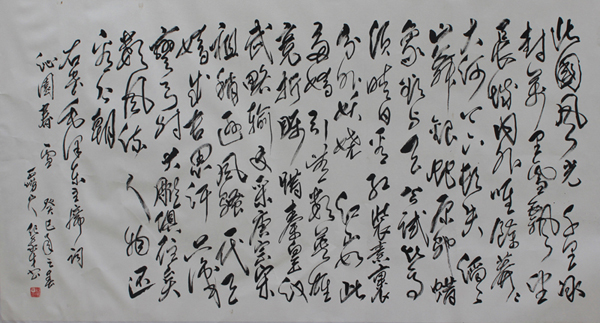 北國風光 千里冰
封萬里雪飄望
長城內外唯餘莽々
大河上下頓失滔々
山舞銀蛇原馳蠟
象欲與天公試比高
須晴日看紅裝素裹
分外妖嬈 江山如此
多嬌引無數英雄
競折腰惜秦皇漢
武略輸文采唐宗宋
祖稍遜風騷一代天
嬌成吉思汗只識
彎弓射大雕俱往矣
數風流人物還
看今朝
右錄毛澤東主席詞
沁園春 雪 癸巳年三春